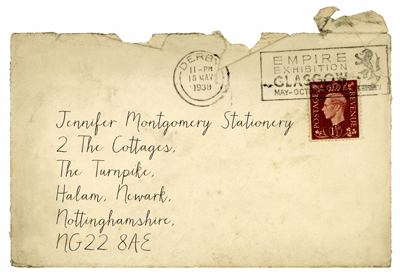 DERBY
11-PM
18 MAY
1938
EMPIRE
EXHIBITION
GLASGOW
MAY-OCT
POSTAGE
REVENUE
1½
Jennifer Montgomery Stationery
2 The Cottages,
The Turnpike,
Halam, Newark,
Nottinghamshire,
NG22 8AE